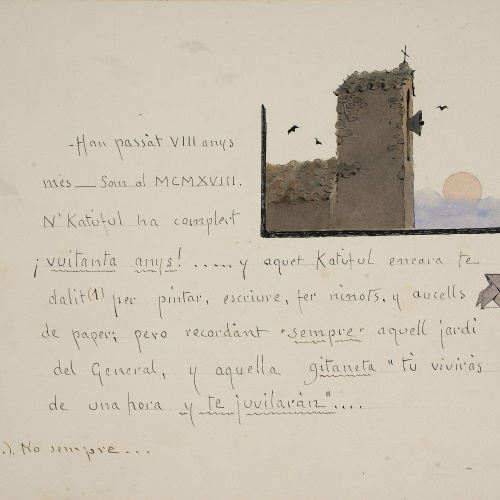 -Han passat VIII anys
més — Som al MCMXVIII.
N'Katuful ha complert
¡vuitanta anys! ..... y aquet Katuful encara te
dalit(1) per pintar, escriure, fer ninots, y aucells
de paper; pero recordant "sempre" aquell jardi
del General, y aquella gitaneta "tù viviràs
de una hora y te juvilaràn"....
.). No sempre...